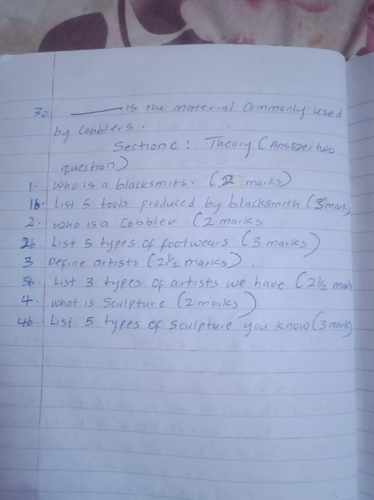 30. ______ is the material commonly used
by Cobblers.
Section C: Theory (Answer two
question)
1. Who is a blacksmith. (2 marks)
1b. List 5 tools produced by blacksmith (3 mark
2. who is a Cobbler (2 marks
2b. List 5 types of footwears (3 marks)
3 Define artists (2½ marks).
3b. List 3 types of artists we have (2½ mark
4. what is Sculpture (2 marks)
4b. List 5 types of sculpture you know (3 mark)